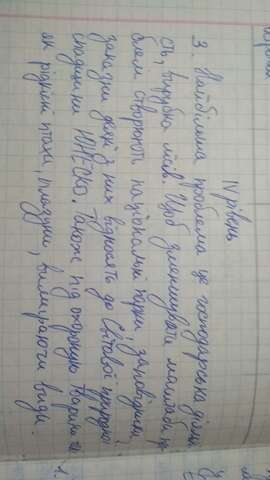 IV рівень
3. Найбільша проблема це господарська діяльні
сть, вирубка лісів. Щоб зменшувати масштаби про
блем створюють національні парки, заповідники,
заказни деякі з них відносять до Світової природної
спадщини ЮНЕСКО. Також під охороною тварини такі
як рідкісні птахи, плазуни, вимираючі види.
1.